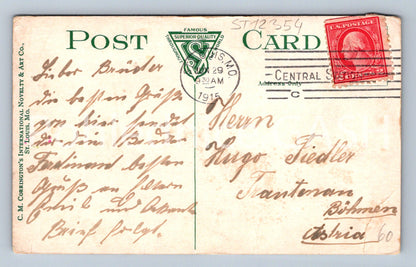 ST12354
FAMOUS
SUPERIOR QUALITY
S
POST CARD
U.S. POSTAGE
MO.
29
AM
1915
CENTRAL
C
Address Only
C. M. CORRINGTON'S INTERNATIONAL NOVELTY & ART Co.,
ST. LOUIS, MO.
Lieber Bruder
die besten Grüße
von hier sendet
dir dein Bruder
Ferdinand besten
Gruß an
und
Brief folgt.
Herrn
Hugo Fiedler
Trautenau
Böhmen
Astria
60